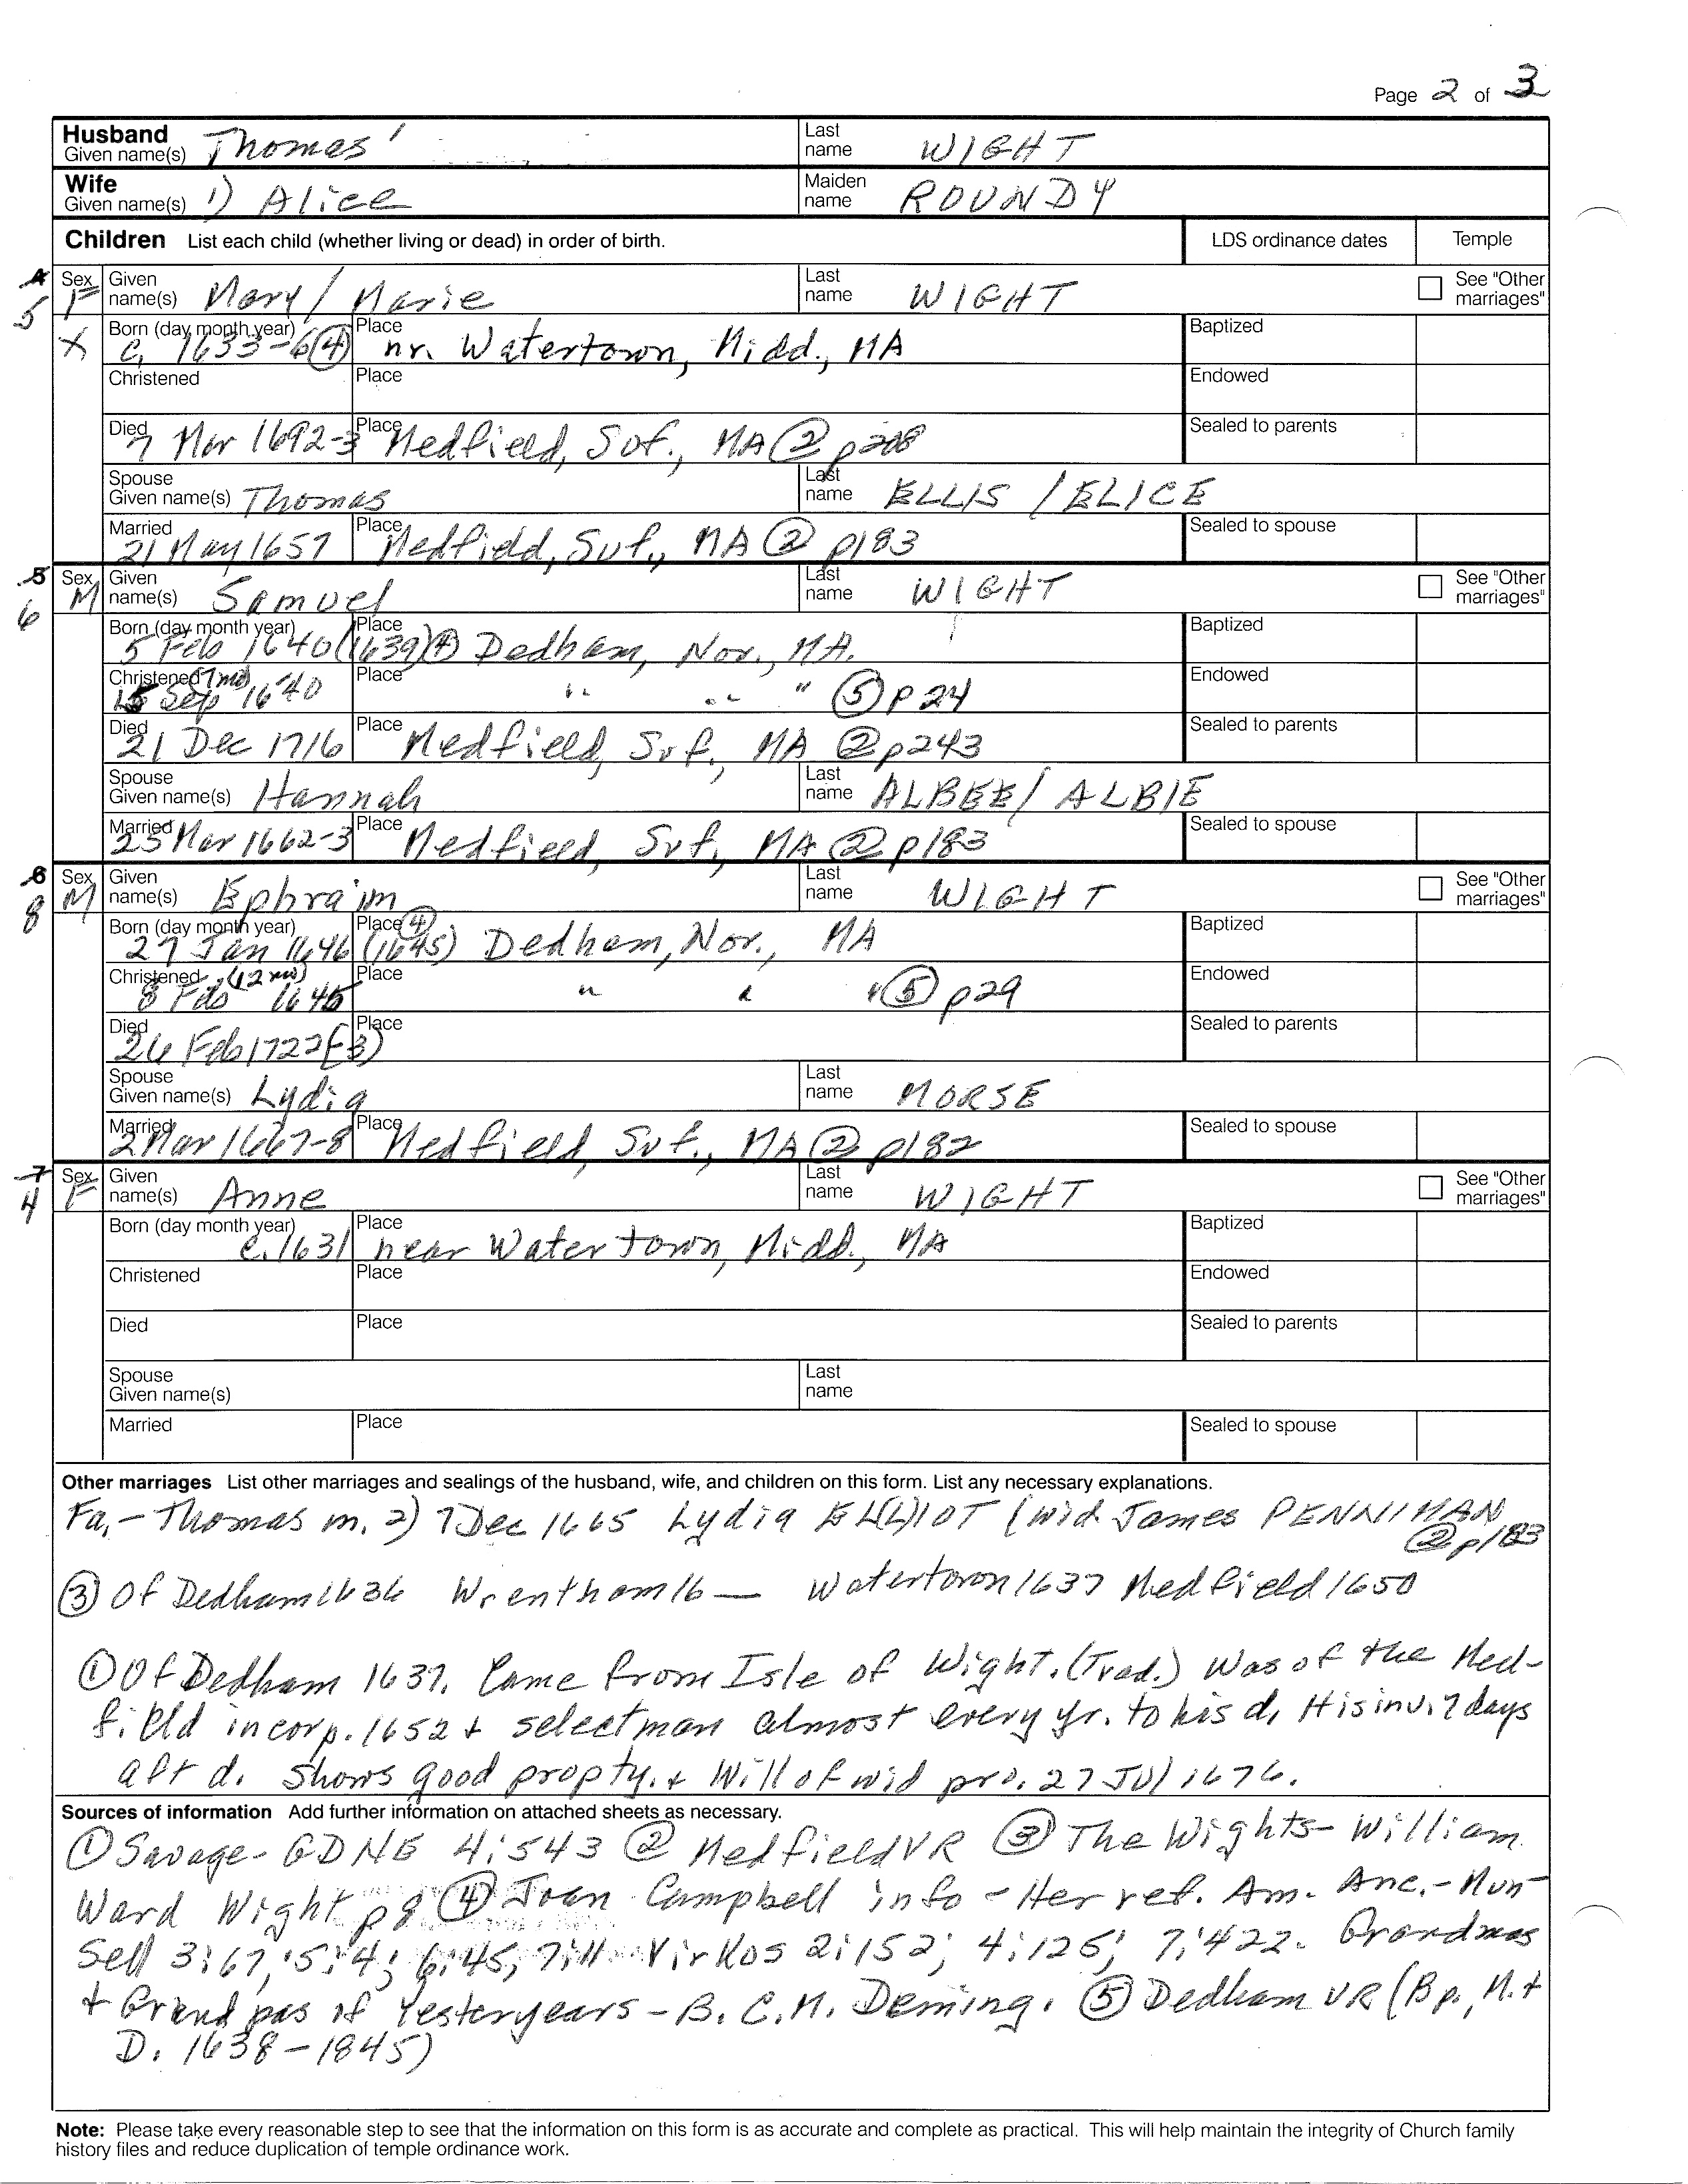 Page 2 of 3
Husband Given name(s) Thomas' Last name WIGHT
Wife Given name(s) 1) Alice Maiden name ROUNDY
Children List each child (whether living or dead) in order of birth. LDS ordinance dates Temple
4 5 Sex F Given name(s) Mary / Marie Last name WIGHT See "Other marriages"
X Born (day month year) c. 1633-6 (4) Place nr. Watertown, Midd., MA Baptized
Christened Place Endowed
Died 7 Mar 1692-3 Place Medfield, Suf., MA (2) p208 Sealed to parents
Spouse Given name(s) Thomas Last name ELLIS / ELICE
Married 21 May 1657 Place Medfield, Suf., MA (2) p183 Sealed to spouse
5 6 Sex M Given name(s) Samuel Last name WIGHT See "Other marriages"
Born (day month year) 5 Feb 1640 (1639) (4) Place Dedham, Nor., MA. Baptized
Christened (7 mo) 15 Sep 1640 Place " " " (5) p24 Endowed
Died 21 Dec 1716 Place Medfield, Suf., MA (2) p243 Sealed to parents
Spouse Given name(s) Hannah Last name ALBEE / ALBIE
Married 25 Mar 1662-3 Place Medfield, Suf., MA (2) p183 Sealed to spouse
6 8 Sex M Given name(s) Ephraim Last name WIGHT See "Other marriages"
Born (day month year) 27 Jan 1646 (1645) (4) Place Dedham, Nor., MA Baptized
Christened (12 mo) 8 Feb 1645 Place " " " (5) p29 Endowed
Died 26 Feb 1722(-3) Place Sealed to parents
Spouse Given name(s) Lydia Last name MORSE
Married 2 Mar 1667-8 Place Medfield, Suf., MA (2) p182 Sealed to spouse
7 4 Sex F Given name(s) Anne Last name WIGHT See "Other marriages"
Born (day month year) c. 1631 Place near Watertown, Midd., MA Baptized
Christened Place Endowed
Died Place Sealed to parents
Spouse Given name(s) Last name
Married Place Sealed to spouse
Other marriages List other marriages and sealings of the husband, wife, and children on this form. List any necessary explanations.
Fa. - Thomas m. 2) 7 Dec 1665 Lydia EL(L)IOT (wid James PENNIMAN
(2) p183
(3) Of Dedham 1636 Wrentham 16— Watertown 1637 Medfield 1650
(1) Of Dedham 1637. Came from Isle of Wight. (Trad.) Was of the Med-
field incorp. 1652 + selectman almost every yr. to his d. His inv. 7 days
aft d. shows good propty. + Will of wid pro. 27 Jul 1676.
Sources of information Add further information on attached sheets as necessary.
(1) Savage - GDNE 4:543 (2) Medfield VR (3) The Wights - William
Ward Wight p 8 (4) Joan Campbell info - Her ref. Am. Anc. - Mun-
sell 3:67, 5:4; 6:45, Virkos 2:152; 4:125; 7:422. Grandmas
+ Grandpas of Yesteryears - B. C. M. Deming. (5) Dedham VR (Bp., M. +
D. 1638-1845)
Note: Please take every reasonable step to see that the information on this form is as accurate and complete as practical. This will help maintain the integrity of Church family
history files and reduce duplication of temple ordinance work.